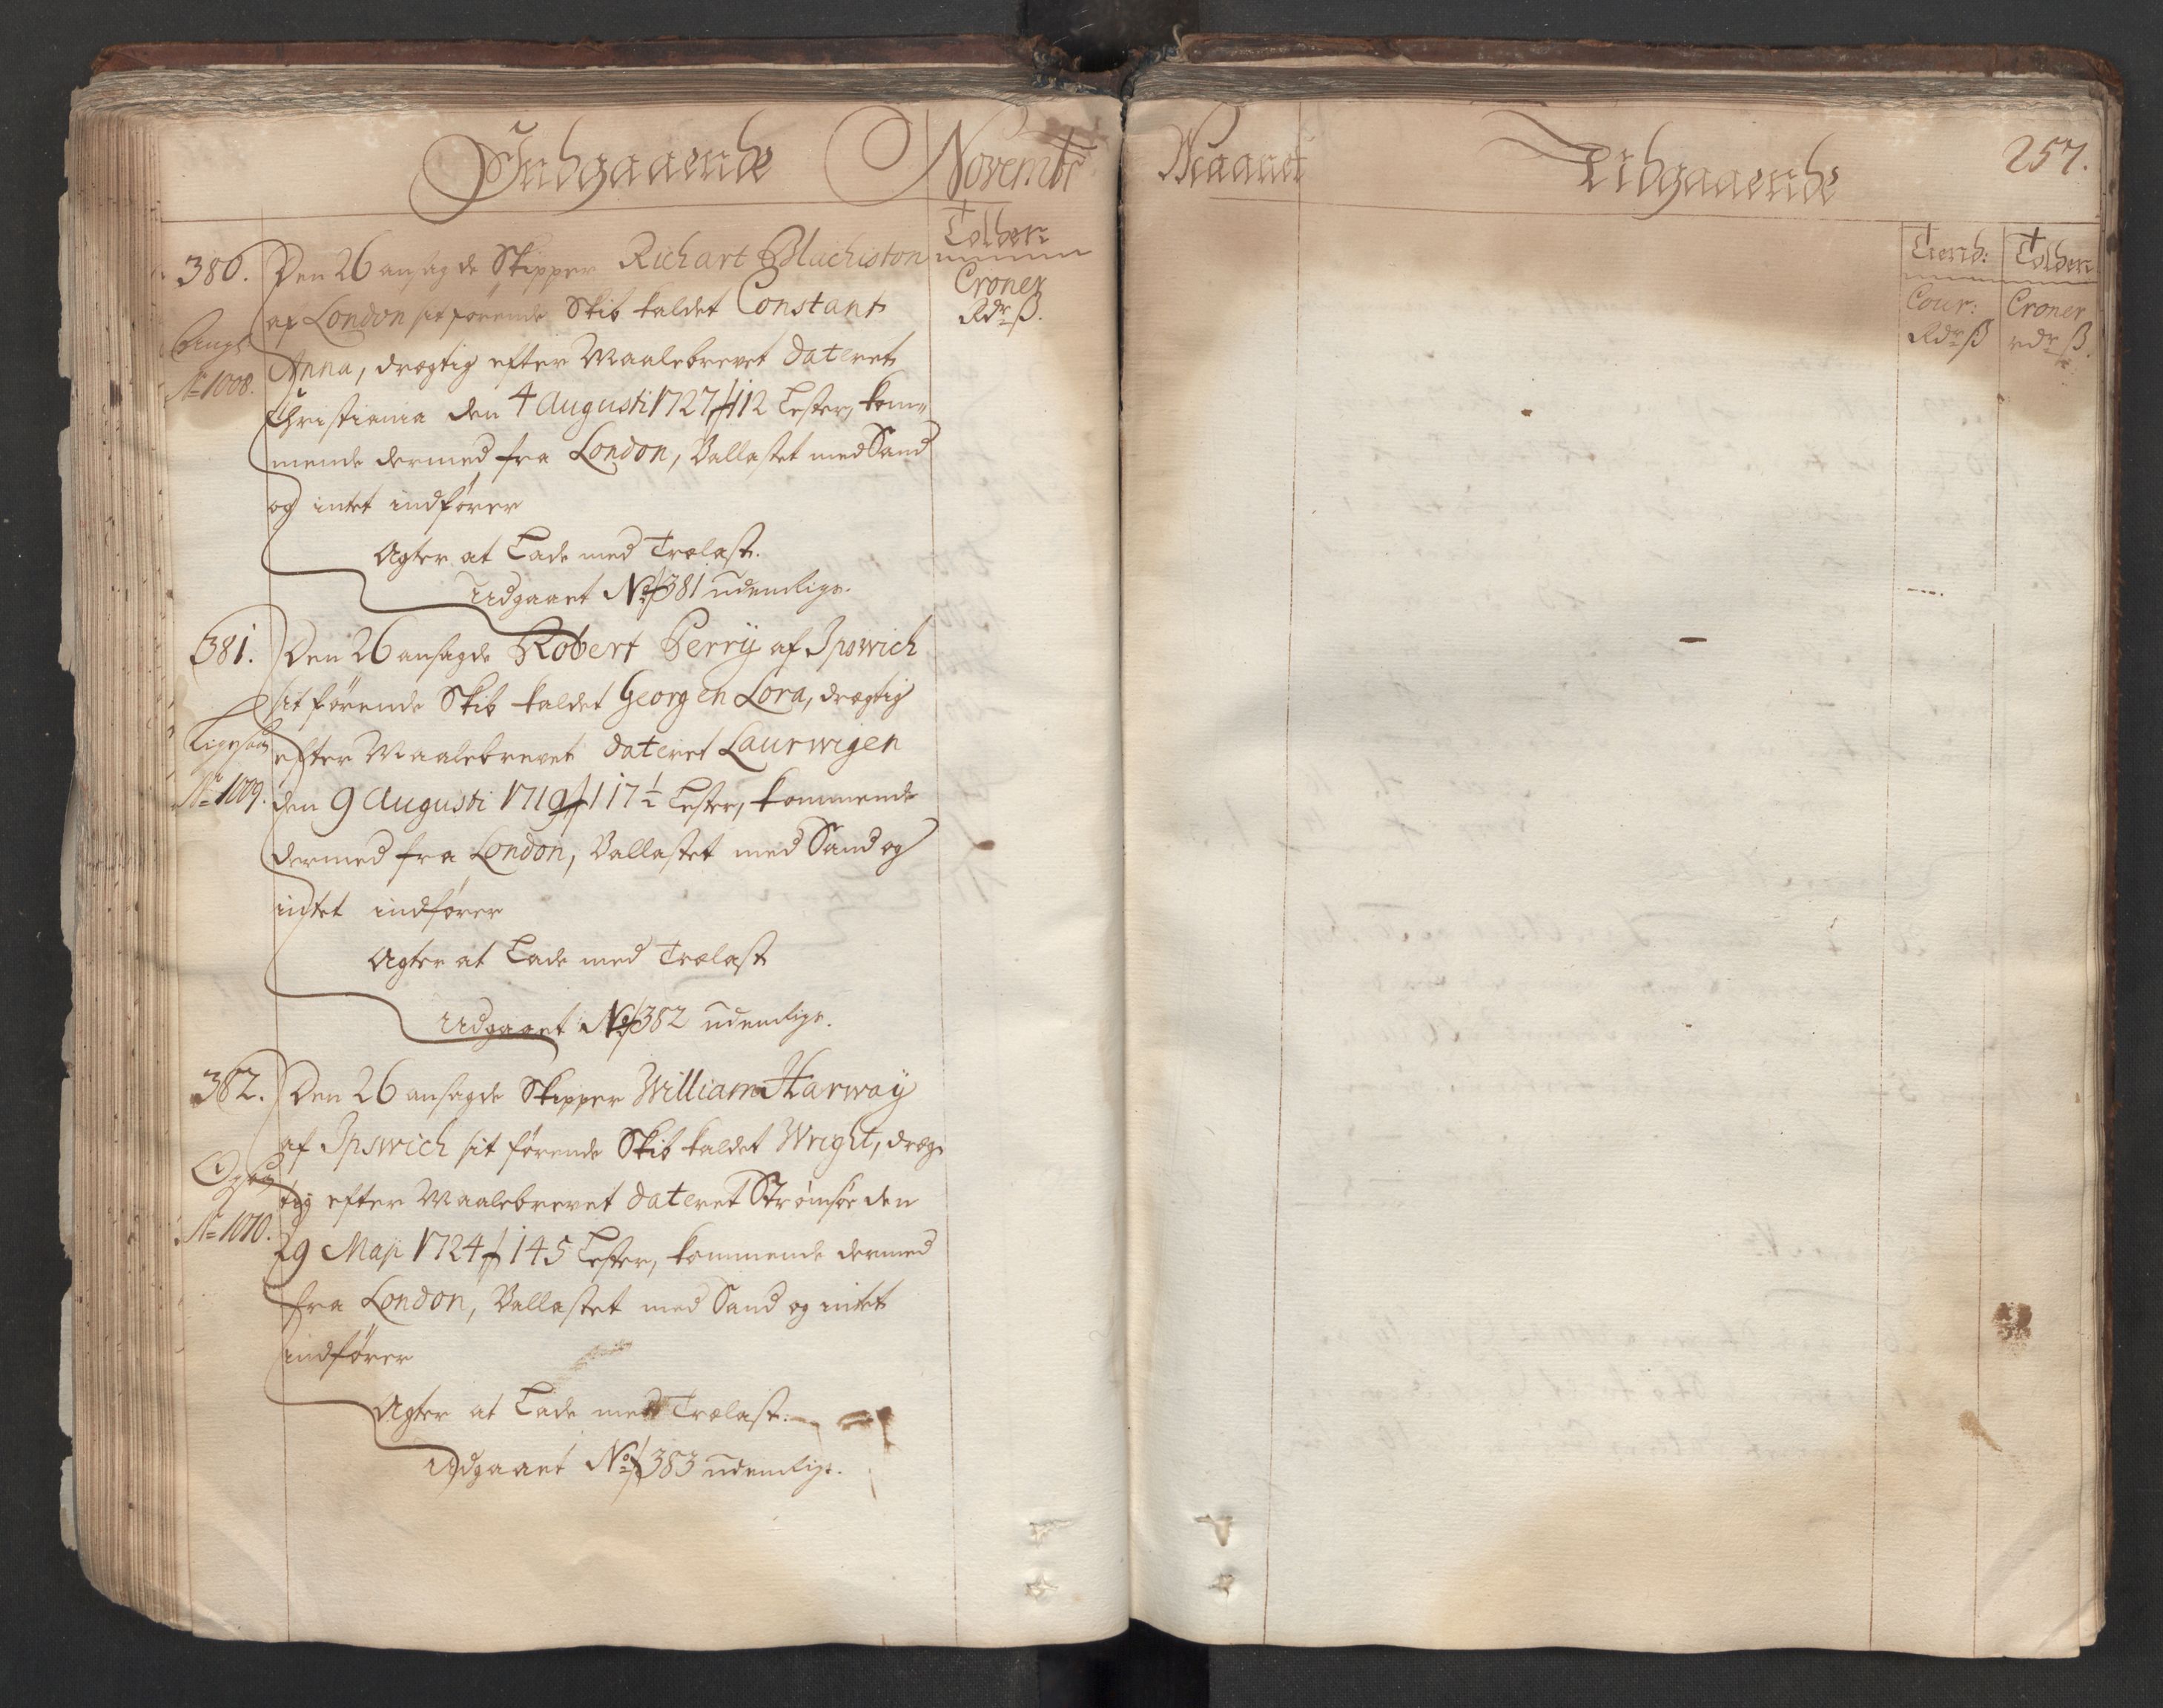 Indgaaende
Novembr
Tolder
Croner
Rdr ß.
380.
Den 26 ansagde Skipper Richart Blachiston
af London sit førende Skib kaldet Constant
No 1008.
Anna, drægtig efter Maalebrevet dateret
Christiania den 4 Augusti 1727 112 Lester, kom-
mende dermed fra London, Ballastet med Sand
og intet indfører
Agter at Lade med Trælast.
Udgaaet No 381 udenlige.
381.
Den 26 ansagde Robert Perrÿ af Ipswich
sit førende Skib kaldet Georg en Lora, drægtig
Ligesaa
efter Maalebrevet dateret Laurwigen
No 1009.
den 9 Augusti 1719 117½ Lester, kommende
dermed fra London, Ballastet med Sand og
intet indfører
Agter at Lade med Trælast
Udgaaet No 382 udenlige.
382.
Den 26 ansagde Skipper William Harwaÿ
af Ipswich sit førende Skib kaldet Wright, dræg-
Ogsaa
tig efter Maalebrevet dateret Strømsøe den
No 1010.
29 Maji 1724 145 Lester, kommende dermed
fra London, Ballastet med Sand og intet
indfører
Agter at Lade med Trælast.
Udgaaet No 383 udenlige.
Maanet
Udgaaende
257.
Tiend:
Tolder
Cour:
Croner
Rdr ß
rdr ß.